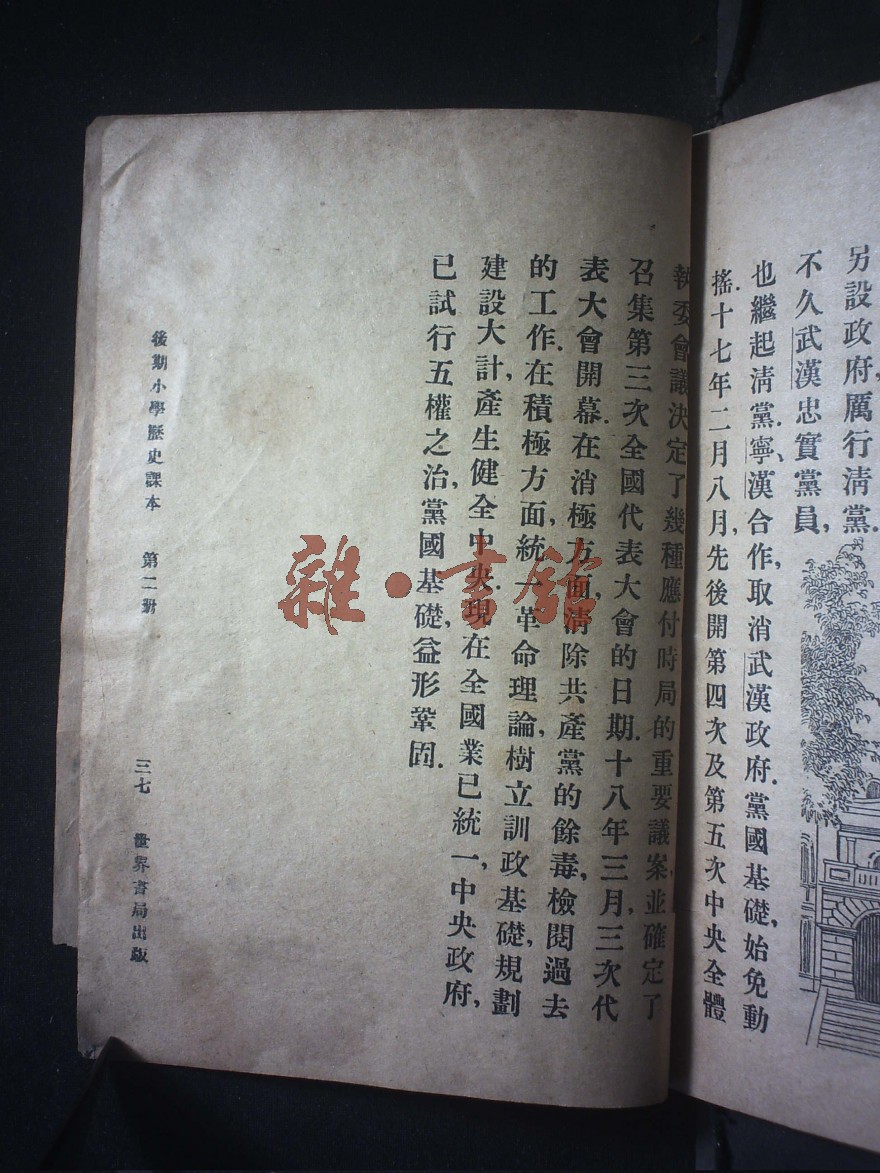 另設政府，厲行清黨．
不久武漢忠實黨員，
也繼起清黨．寧、漢合作，取消武漢政府．黨國基礎，始免動
搖．十七年二月八月，先後開第四次及第五次中央全體
執委會議，決定了幾種應付時局的重要議案，並確定了
召集第三次全國代表大會的日期．十八年三月，三次代
表大會開幕．在消極方面，清除共產黨的餘毒，檢閱過去
的工作．在積極方面，統一革命理論，樹立訓政基礎，規劃
建設大計，產生健全中央．現在全國業已統一，中央政府，
已試行五權之治，黨國基礎，益形鞏固．
後期小學歷史課本 第二冊 三七 世界書局出版
雜·書館